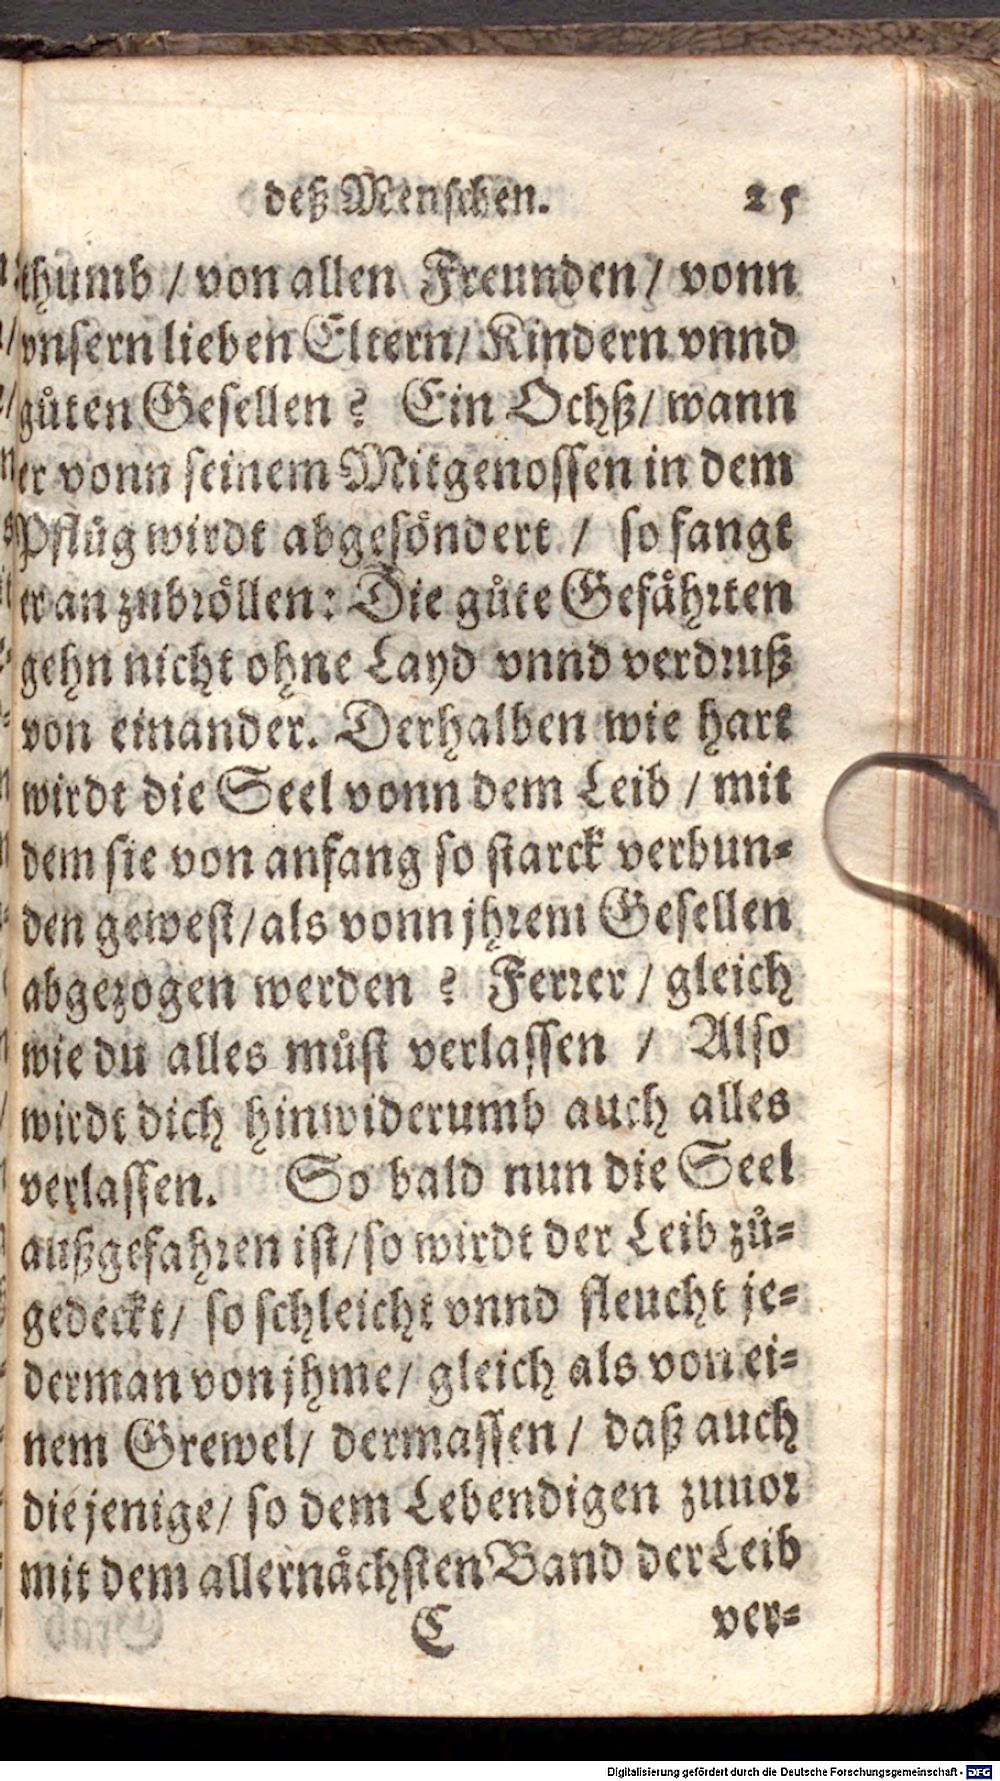 deß Menschen. 25
thumb / von allen Freunden / vonn
vnsern lieben Eltern / Kindern vnnd
gůten Gesellen ? Ein Ochß / wann
er vonn seinem Mitgenossen in dem
Pflůg wirdt abgesöndert / so fangt
er an zubröllen : Die gůte Gefåhrten
gehn nicht ohne Layd vnnd verdruß
von einander. Derhalben wie hart
wirdt die Seel vonn dem Leib / mit
dem sie von anfang so starck verbun-
den gewest / als vonn jhrem Gesellen
abgezogen werden ? Ferrer / gleich
wie du alles můst verlassen / Also
wirdt dich hinwiderumb auch alles
verlassen. So bald nun die Seel
außgefahren ist / so wirdt der Leib zů-
gedeckt / so schleicht vnnd fleucht je-
derman von jhme / gleich als von ei-
nem Grewel / dermassen / daß auch
diejenige / so dem Lebendigen zuuor
mit dem allernåchsten Band der Leib
C ver-
Digitalisierung gefördert durch die Deutsche Forschungsgemeinschaft - DFG